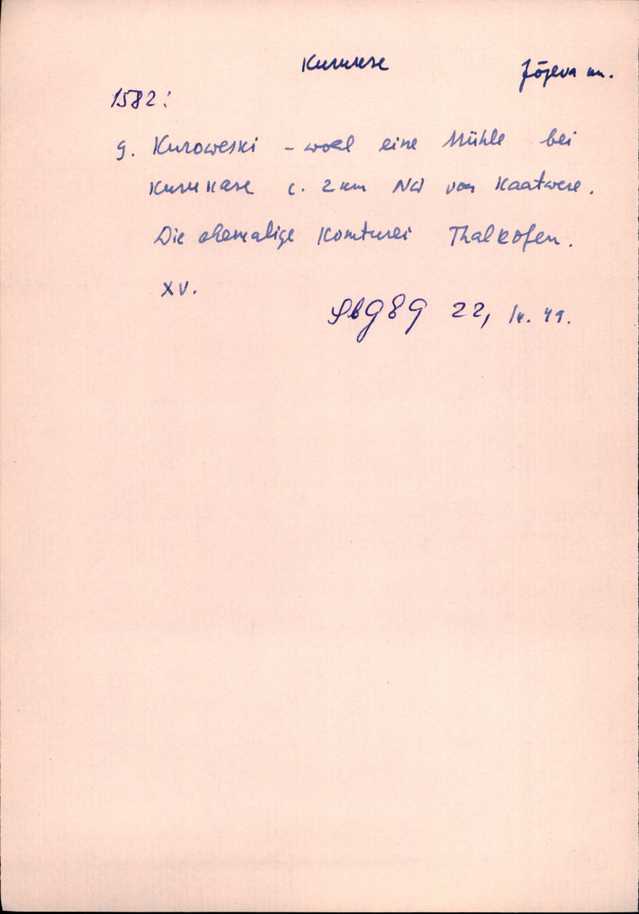 Kurukse Jõgeva mn.
1582:
g. Kuroweski – wohl eine Mühle bei
Kurukase c. 2 km NW von Kaatwere.
Die ehemalige Komturei Thalkofen.
XV.
SbGEG 22, lk. 49.